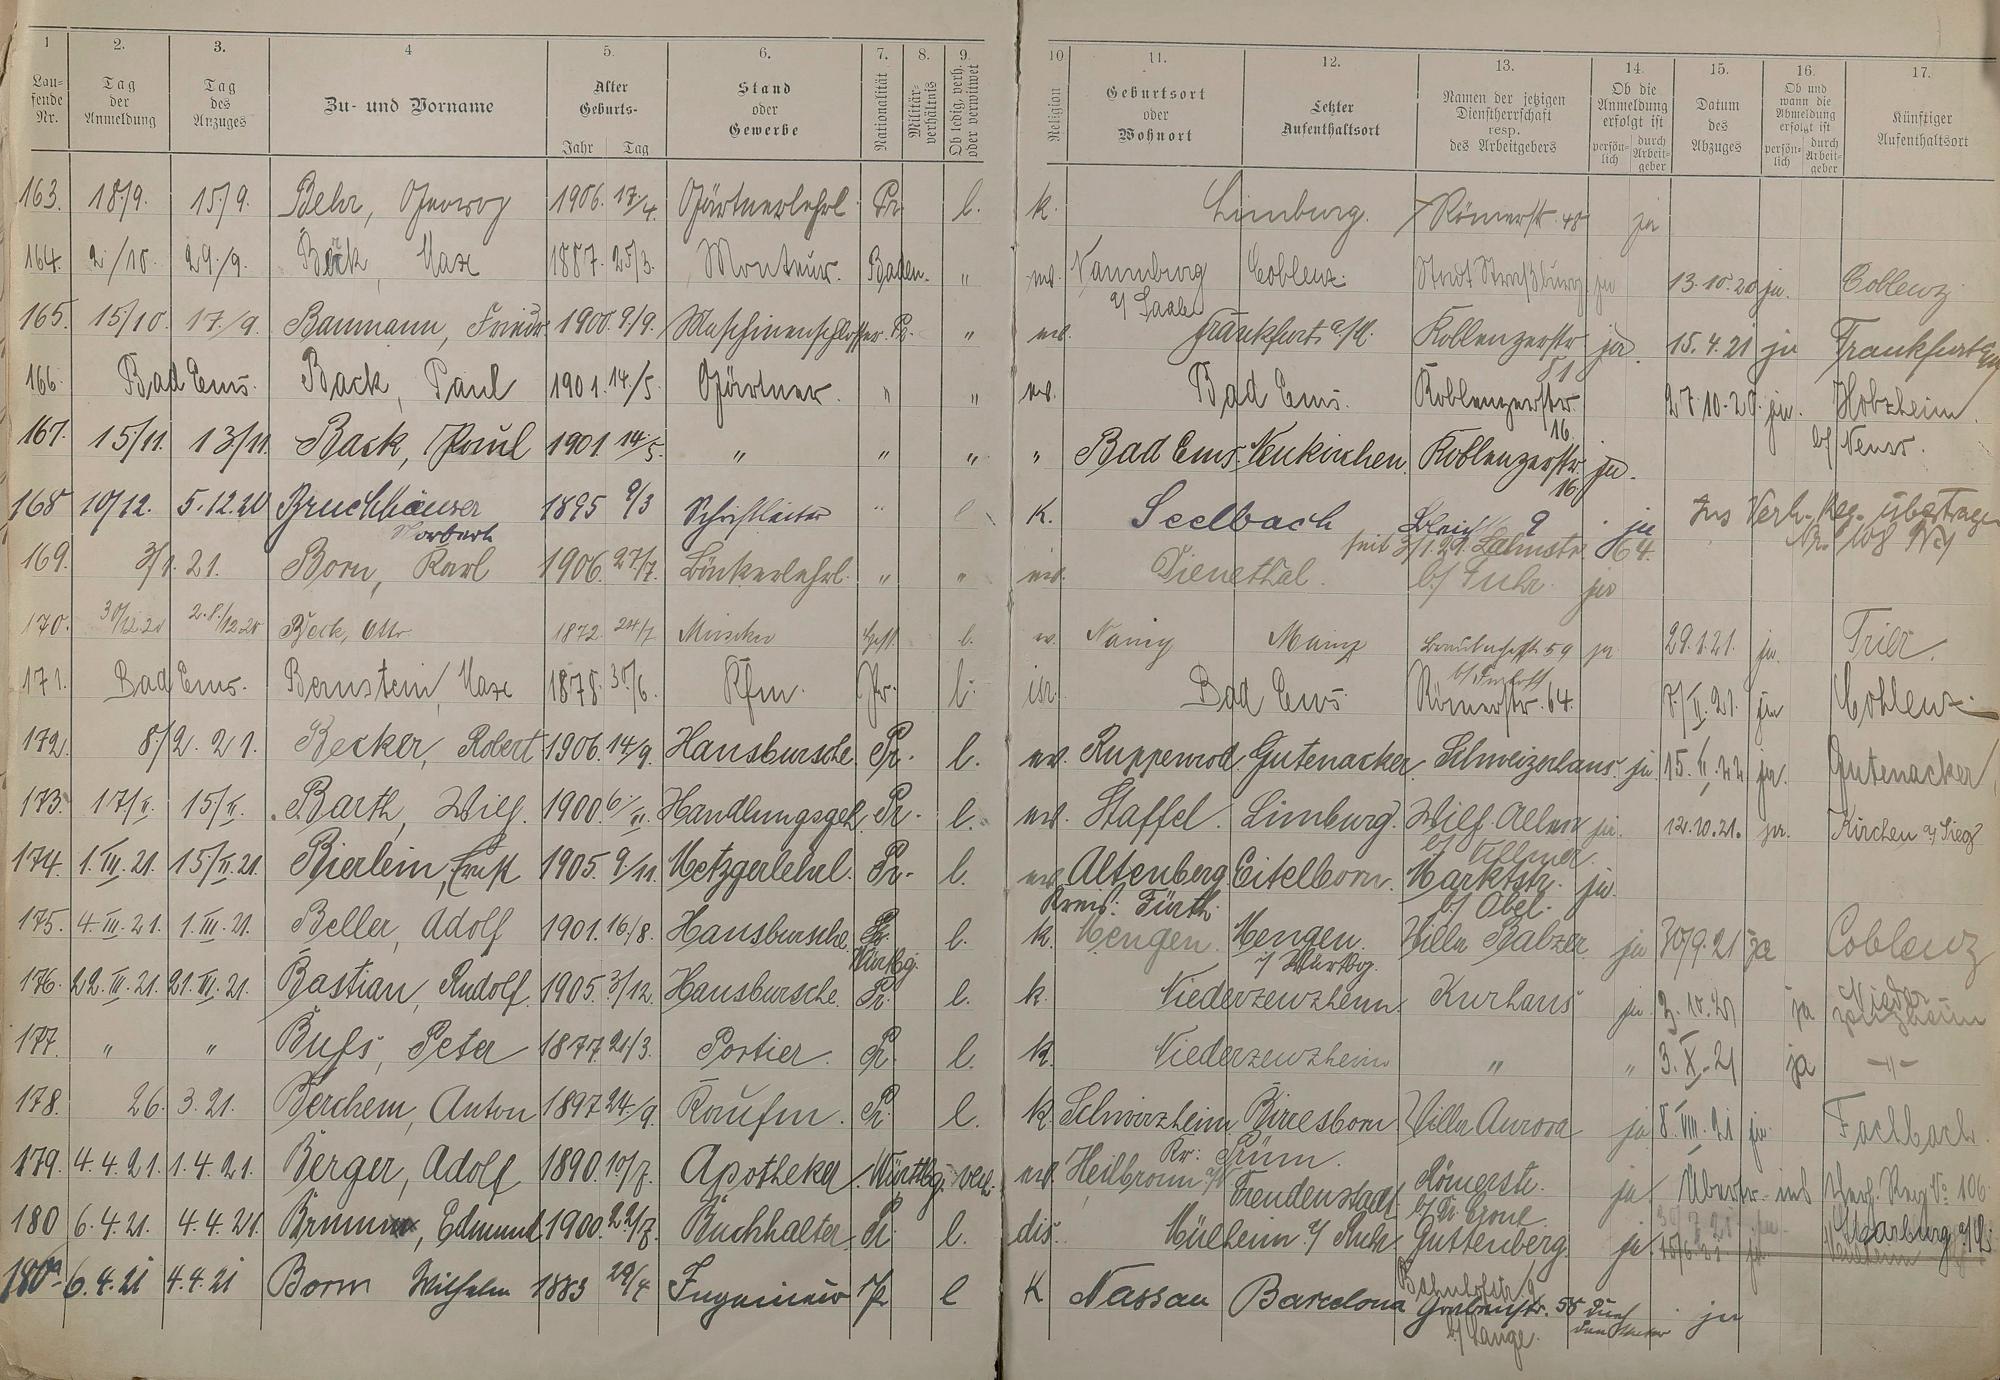 1 2. 3. 4 5. 6. 7. 8. 9. 10 11. 12. 13. 14. 15. 16. 17.
Laufende Nr. Tag der Anmeldung Tag des Anzuges Zu- und Vorname Alter Geburts- Jahr Tag Stand oder Gewerbe Nationalität Militärverhältnis Ob ledig, verh. oder verwitwet Religion Geburtsort oder Wohnort Letzter Aufenthaltsort Namen der jetzigen Dienstherrschaft resp. des Arbeitgebers Ob die Anmeldung erfolgt ist persönlich durch Arbeitgeber Datum des Abzuges Ob und wann die Abmeldung erfolgt ist persönlich durch Arbeitgeber Künftiger Aufenthaltsort
163. 18/9. 15/9. Behr, Georg 1906. 17/4. Gärtnerlehrl. Pr. l. k. Limburg. Römerstr. 48 ja
164. 2/10. 29./9. Böck, Max 1887. 25/3. Monteur. Baden. " ev. Naumburg a/Saale Coblenz. Stadt Straßburg ja 13.10.20 ja. Coblenz
165. 15/10. 17./9. Baumann, Friedr. 1900. 9/9. Maschinenschlosser. Pr. " ev. Frankfurt a/M. Koblenzerstr. 51 ja. 15.4.21 ja Frankfurt
166. Bad Ems. Back, Paul 1901. 14./5. Gärtner. " " ev. Bad Ems. Koblenzerstr. 16. 27.10.20. ja. Holzheim b/Neuss.
167. 15/11. 13/11. Back, Paul 1901. 14/5. " " " " Bad Ems. Neukirchen Koblenzerstr. 16. ja.
168 10/12. 5.12.20 Bruchhäuser Norbert 1895 9/3 Schriftleiter " l K. Seelbach 9 ja Ins Verh. Reg. übertragen
seit 3/1.21. Lahnstr. 64.
169. 3/1. 21. Born, Karl 1906. 27/7. Bäckerlehrl. " " ev. Dienethal. b/ Fuhr. ja
170. 30/12.20 28./12.20 Beck, Otto 1872. 24/7 Musiker Hess. l. ev. Nancy Mainz 59 ja 29.1.21. ja. Trier.
171. Bad Ems. Bernstein, Max 1878. 30/6. Kfm. Pr. l. isr. Bad Ems Römerstr. 64. 7/II.21. ja Coblenz.
172. 8/2. 21. Becker, Robert 1906. 14/9. Hausbursche. Pr. l. ev. Ruppenrod. Gutenacker. Schweizerhaus. ja 15. II. 22 ja. Gutenacker
173. 17/II. 15/II. Barth, Wilh. 1900. 6/II. Handlungsgeh. Pr. l. ev. Staffel. Limburg. Wilh. ja. 12.10.21. ja. Kirchen a/Sieg
174. 1.III.21. 15/II.21. Bierlein, Ernst 1905. 9/11. Metzgerlehrl. Pr. l. ev. Altenberg Kreis: Fürth. Eitelborn. Marktstr. b/ Obel. ja.
175. 4.III.21. 1.III.21. Beller, Adolf 1901. 16/8. Hausbursche. Pr. Württbg. l. k. Mengen. Mengen. i/ Württbg. Villa Balzer ja 30/9.21 ja Coblenz
176. 22.III.21. 21.III.21. Bastian, Rudolf 1905. 3/12. Hausbursche. Pr. l. k. Niederzeuzheim. Kurhaus ja. 2.10.21 ja Niederzeuzheim
177. " " Bufs, Peter 1877. 21/3. Portier. Pr. l. k. Niederzeuzheim " " 3.X.21 ja -"-
178. 26. 3.21. Berchem, Anton 1897 24/9. Kaufm. Pr. l. k. Schwirzheim Birresborn Kr: Prüm. Villa Aurora ja 8.VIII.21 ja. Fachbach.
179. 4.4.21. 1.4.21. Berger, Adolf 1890. 10/7. Apotheker. Württbg. verh. ev. Heilbronn a/N Freudenstadt Römerstr. ja Übertr. ins Verh. Reg. No 106
180 6.4.21. 4.4.21. Brumm, Edmund 1900. 22/7. Buchhalter. Pr. l. dis. Mülheim a/ Ruhr Guttenberg. ja Marburg a/L.
180a 6.4.21 4.4.21 Born Wilhelm 1883 29/4 Ingenieur Pr l K Nassau Barcelona Bahnhofstr. 9 Grabenstr. 55 b/ Lange. ja